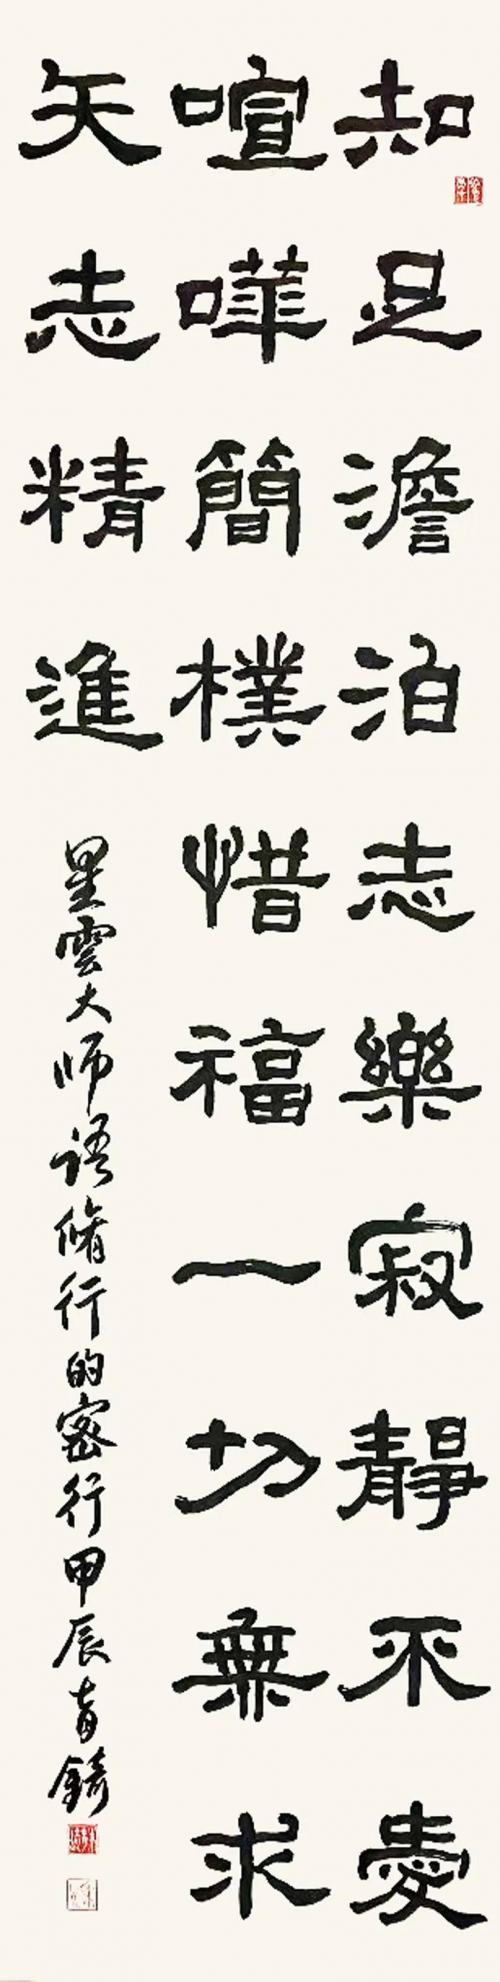 知足澹泊志樂寂靜不愛
喧嘩簡樸惜福一切無求
矢志精進
星雲大师語脩行的密行甲辰青錡